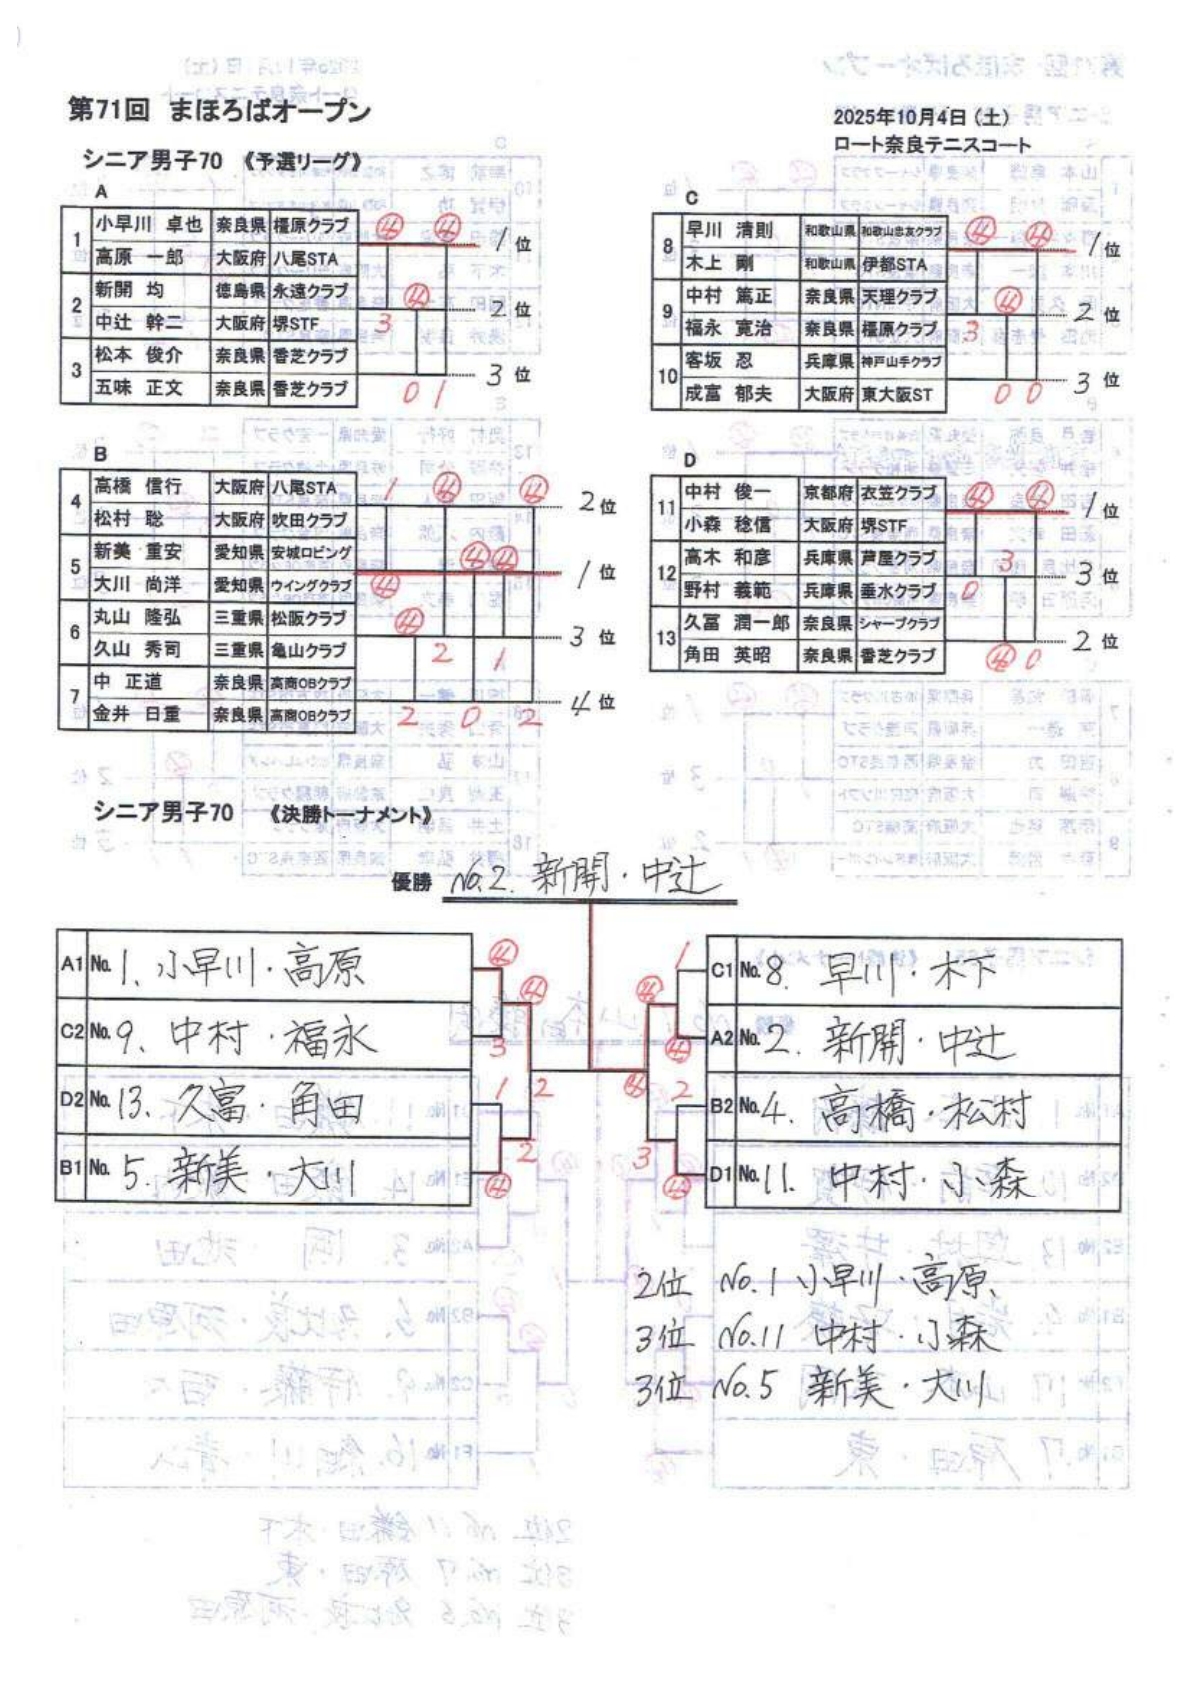 第71回 まほろばオープン
2025年10月4日（土）
ロート奈良テニスコート
シニア男子70 《予選リーグ》
A
1 小早川 卓也 奈良県 橿原クラブ ④ ④ 1位
高原 一郎 大阪府 八尾STA
2 新開 均 徳島県 永遠クラブ 3 ④ 2位
中辻 幹二 大阪府 堺STF
3 松本 俊介 奈良県 香芝クラブ 0 1 3位
五味 正文 奈良県 香芝クラブ
B
4 高橋 信行 大阪府 八尾STA 1 ④ ④ 2位
松村 聡 大阪府 吹田クラブ
5 新美 重安 愛知県 安城ロビング ④ ④ ④ 1位
大川 尚洋 愛知県 ウイングクラブ
6 丸山 隆弘 三重県 松阪クラブ ④ 2 1 3位
久山 秀司 三重県 亀山クラブ
7 中 正道 奈良県 高商OBクラブ 2 0 2 4位
金井 日重 奈良県 高商OBクラブ
C
8 早川 清則 和歌山県 和歌山忠友クラブ ④ ④ 1位
木上 剛 和歌山県 伊都STA
9 中村 篤正 奈良県 天理クラブ 3 ④ 2位
福永 寛治 奈良県 橿原クラブ
10 客坂 忍 兵庫県 神戸山手クラブ 0 0 3位
成富 郁夫 大阪府 東大阪ST
D
11 中村 俊一 京都府 衣笠クラブ ④ ④ 1位
小森 稔信 大阪府 堺STF
12 高木 和彦 兵庫県 芦屋クラブ 0 3 3位
野村 義範 兵庫県 垂水クラブ
13 久冨 潤一郎 奈良県 シャープクラブ ④ 0 2位
角田 英昭 奈良県 香芝クラブ
シニア男子70 《決勝トーナメント》
優勝 No.2. 新開・中辻
A1 No. 1. 小早川・高原 ④ ④
C2 No. 9. 中村・福永 3
D2 No. 13. 久富・角田 1 2
B1 No. 5. 新美・大川 ④ 2
C1 No. 8. 早川・木下 1 ④
A2 No. 2. 新開・中辻 ④ ④
B2 No. 4. 高橋・松村 2
D1 No. 11. 中村・小森 ④ 3
2位 No.1 小早川・高原
3位 No.11 中村・小森
3位 No.5 新美・大川